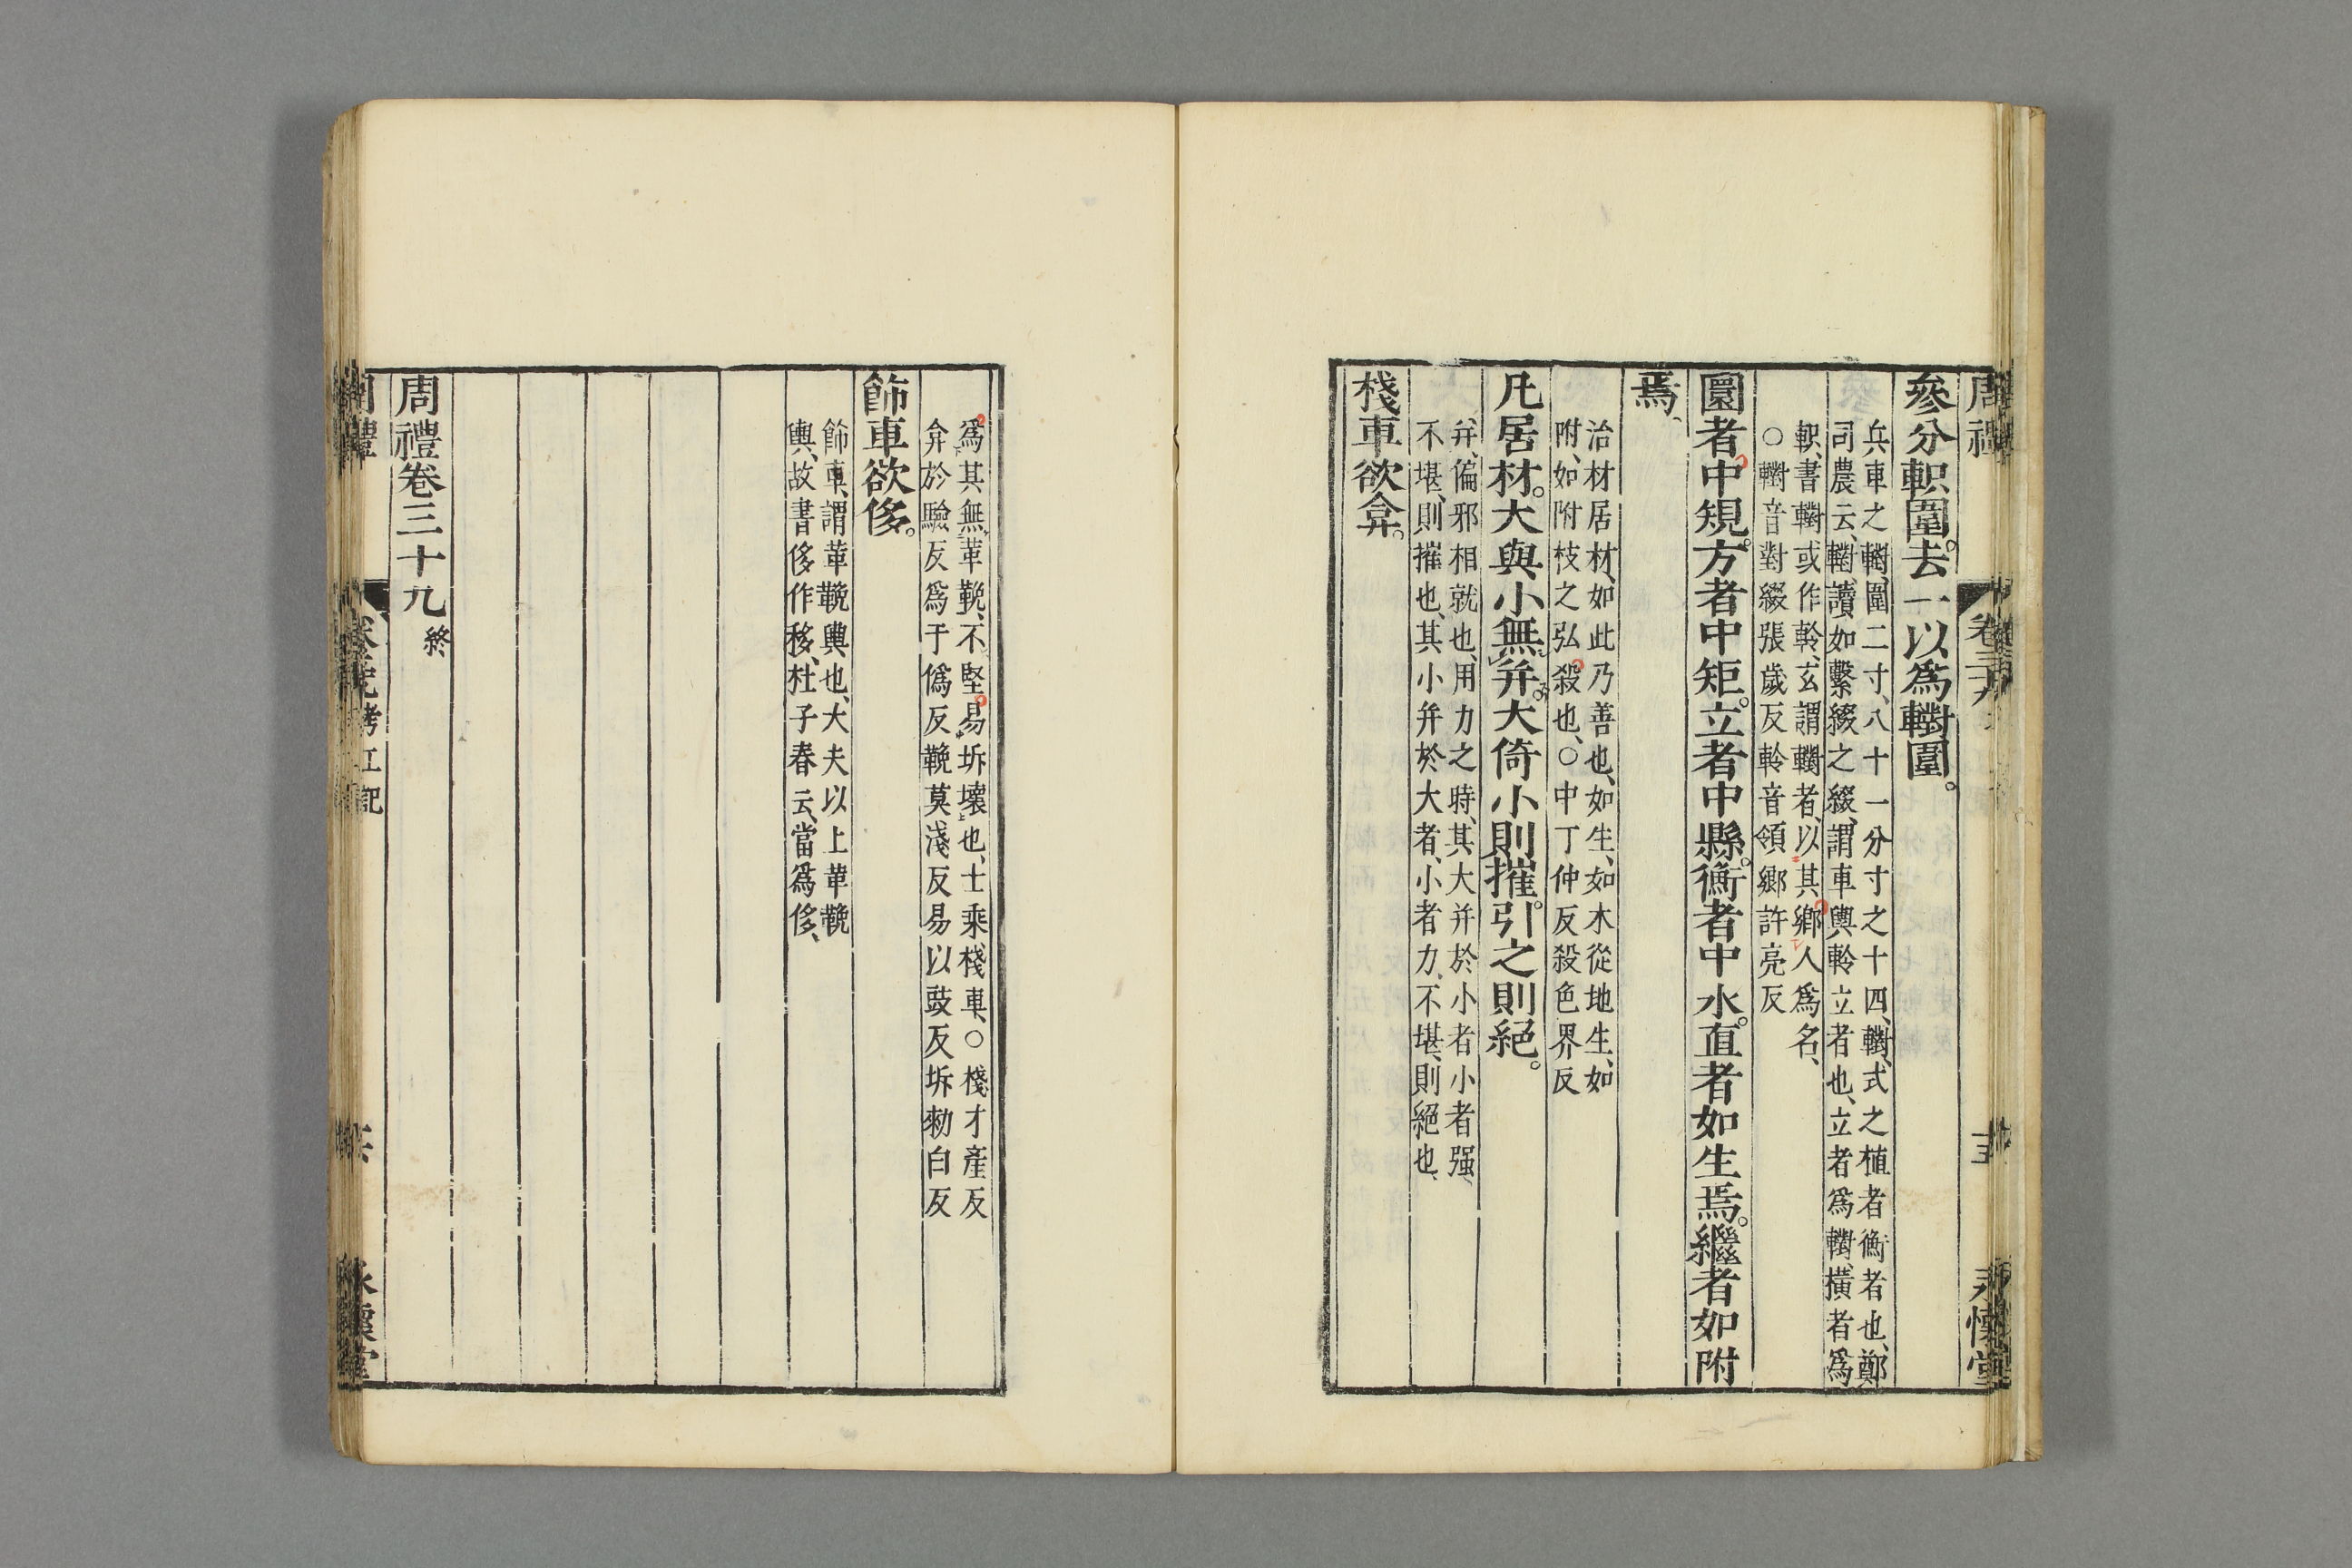 參分軹圍。去一以爲轛圍。
兵車之轛、圍二寸、八十一分寸之十四、轛、式之植者衡者也、鄭
司農云、轛、讀如繫綴之綴、謂車輿軨立者也、立者爲轛、橫者爲
軹、書轛、或作軨、玄謂轛者、以其鄉人爲名、
○轛音對綴張歲反軨音領鄉許亮反
圜者中規。方者中矩。立者中縣。衡者中水。直者如生焉。繼者如附
焉、
治材居材、如此乃善也、如生、如木從地生、如
附、如附枝之弘殺也、○中丁仲反殺色界反
凡居材。大與小無幷。大倚小則摧。引之則絕。
幷、偏邪相就也、用力之時、其大幷於小者小者强、
不堪、則摧也、其小幷於大者、小者力、不堪、則絕也、
棧車欲弇。
爲其無革鞔、不堅易坼壞也、士乘棧車、○棧才產反
弇於驗反爲于僞反鞔莫淺反易以豉反坼勑白反
飾車欲侈。
飾車、謂革鞔輿也、大夫以上革鞔
輿、故書侈作移、杜子春云、當爲侈、
周禮卷三十九終
考工記
永懷堂